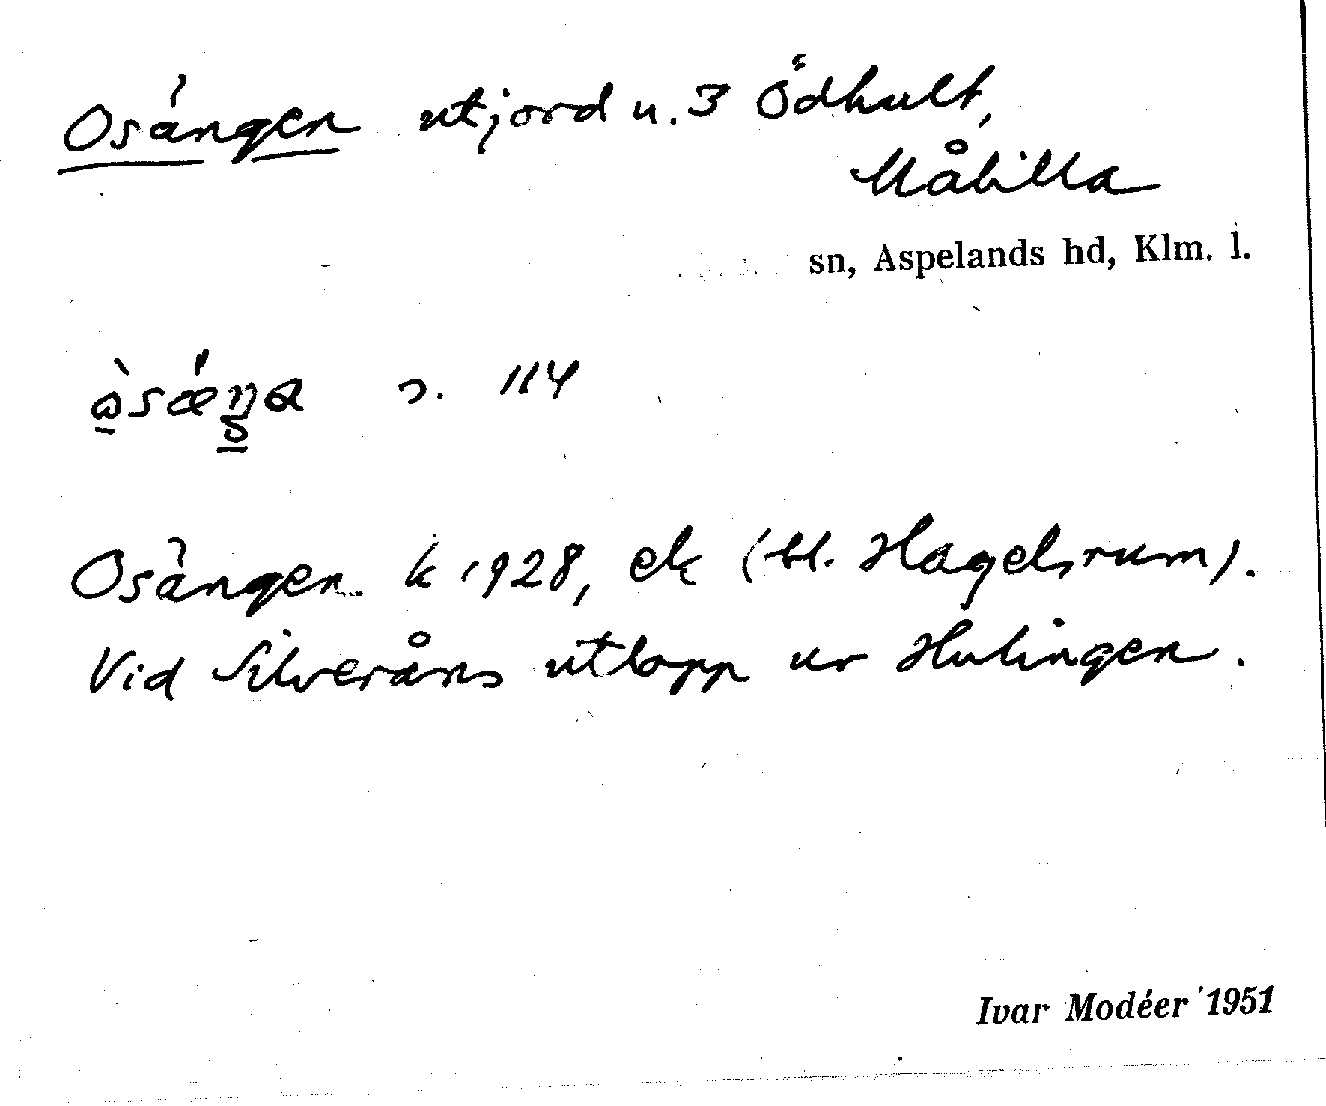 Osängen utjord u. 3 Ödhult,
Målilla
sn, Aspelands hd, Klm. l.
114
Osängen k 1928, ek (bl. Hagelsrum).
Vid Silveråns utlopp ur Hulingen.
Ivar Modéer 1951